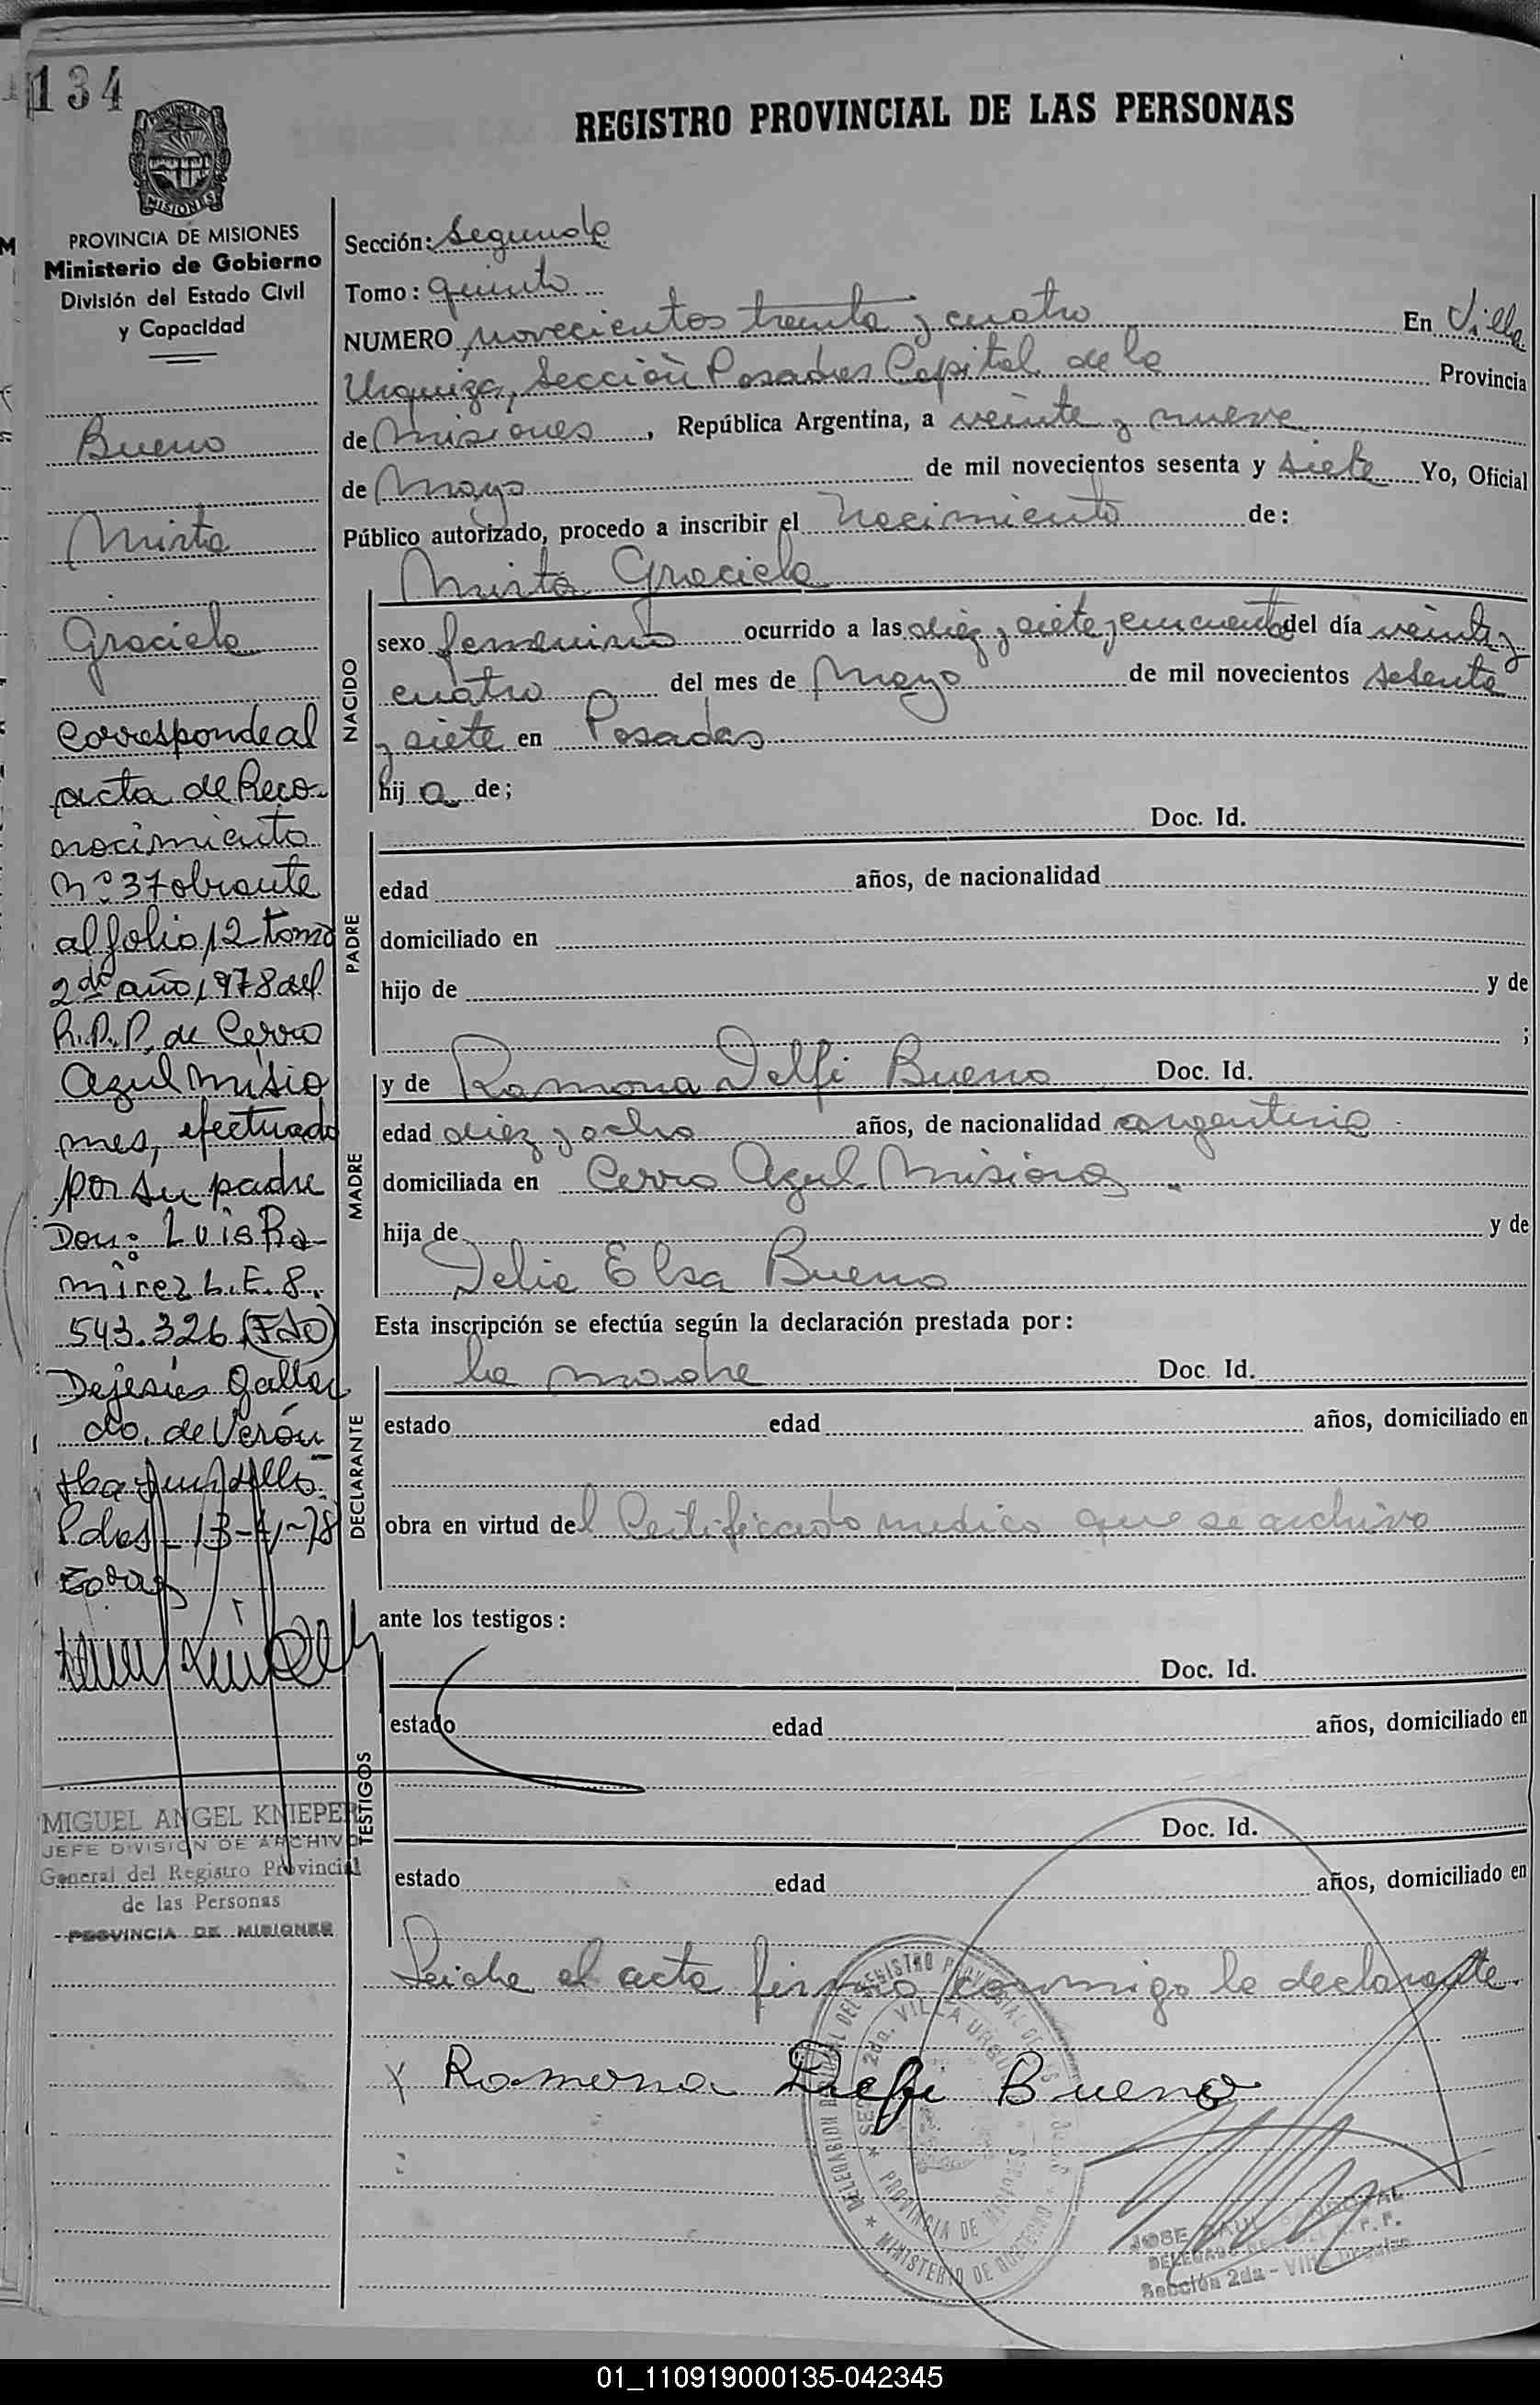 134
REGISTRO PROVINCIAL DE LAS PERSONAS
MISIONES
PROVINCIA DE MISIONES
Ministerio de Gobierno
División del Estado Civil
y Capacidad
Bueno
Mirta
Graciela
Corresponde al
acta de Reco-
nocimiento
Nº 37 obrante
al folio 12 tomo
2do año 1978 del
R.P.P. de Cerro
Azul Misio
nes, efectuado
por su padre
Don: Luis Ra-
mirez L.E. 8.
543.326 (Fdo)
Dejesús Gallar
do de Verón
Pdas 13-4-78
MIGUEL ANGEL KNIEPER
JEFE DIVISION DE ARCHIVO
General del Registro Provincial
de las Personas
PROVINCIA DE MISIONES
Sección: Segunda
Tomo: quinto
NUMERO novecientos treinta y cuatro En Villa
Urquiza, Sección Posadas Capital de la Provincia
de Misiones, República Argentina, a veinte y nueve
de Mayo de mil novecientos sesenta y siete Yo, Oficial
Público autorizado, procedo a inscribir el Nacimiento de:
Mirta Graciela
NACIDO
sexo femenino ocurrido a las diez y siete y cincuenta del día veinte y
cuatro del mes de Mayo de mil novecientos setenta
y siete en Posadas
hij a de;
PADRE
Doc. Id.
edad años, de nacionalidad
domiciliado en
hijo de y de
;
MADRE
y de Ramona Delfi Bueno Doc. Id.
edad diez y ocho años, de nacionalidad argentina
domiciliada en Cerro Azul Misiones
hija de y de
Delia Elsa Bueno
Esta inscripción se efectúa según la declaración prestada por:
DECLARANTE
la madre Doc. Id.
estado edad años, domiciliado en
obra en virtud del Certificado medico que se archiva
ante los testigos:
TESTIGOS
Doc. Id.
estado edad años, domiciliado en
Doc. Id.
estado edad años, domiciliado en
Leida el acta firma conmigo la declarante
x Ramona Delfi Bueno
SEC. 2da. VILLA URQUIZA
PROVINCIA DE MISIONES
MINISTERIO DE GOBIERNO
JOSE RAUL SANDOVAL
Sección 2da - Villa Urquiza
01_110919000135-042345